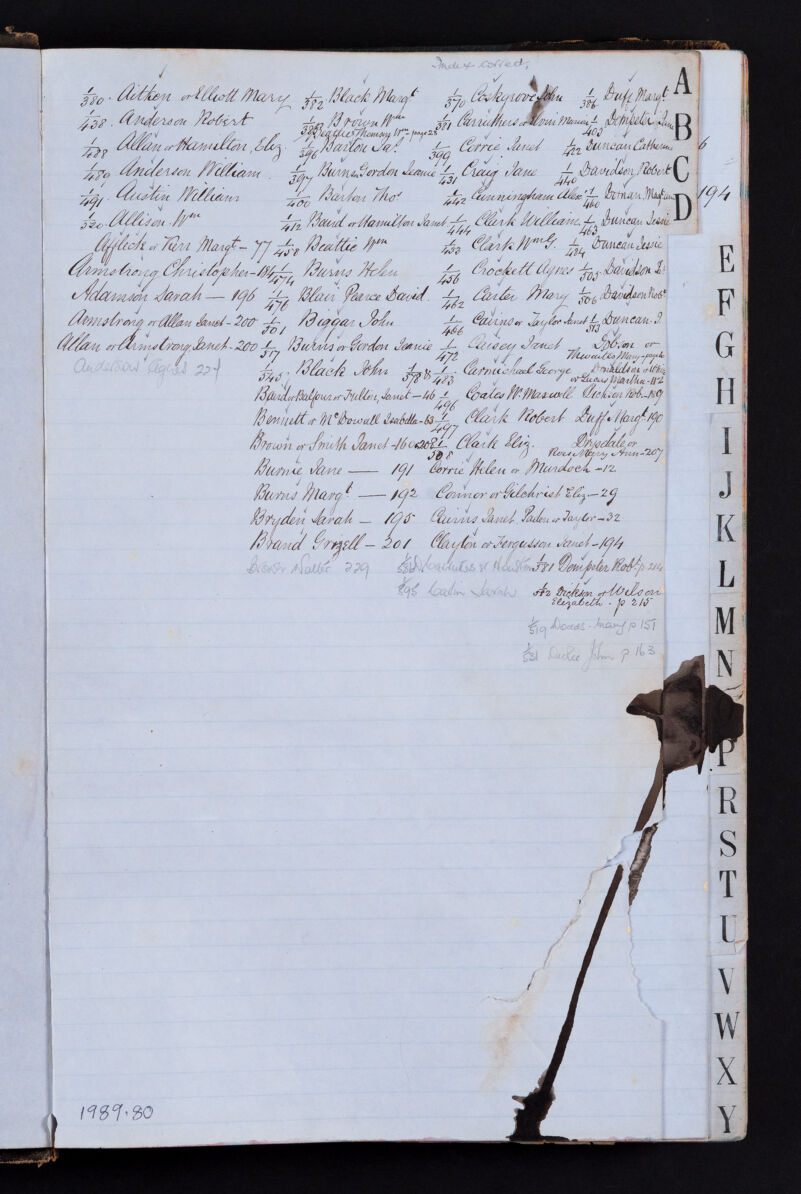 Index correct
1/380 Aitken or Elliott Mary
1/438 Anderson Robert
1/488 Allan or Hamilton Eliz.
1/489 Anderson William
1/491 Austin William
1/520 Allison Wm
Affleck or Kerr Margt - 77
Armstrong Christopher - 184
Adamson Sarah - 196
Armstrong or Allan Janet - 200
Allan or Armstrong Janet - 200
Anderson Agnes 224
1/382 Black Margt
Brown Wm
1/396 Barton Jas.
1/397 Burns Gordon Jeanie
1/400 Barton Thos
1/412 Baird or Hamilton Janet
1/458 Beattie Wm
1/474 Burns Helen
1/476 Blair Pearce David
1/501 Biggar John
1/517 Burns or Gordon Jeanie
1/545 Black John
Baird or Balfour or Fulton, Janet - 46
Bennett or McDowall Isabella - 63
Brown or Smith Janet - 160
Burnie Jane - 191
Burns Margt - 192
Bryden Sarah - 195
Brand Grizell - 201
229
1/370 Coskgrove John
1/381 Carruthers or
1/399 Corrie Janet
1/431 Craig Jane
1/442 Cunningham Alex
1/444 Clark William
1/453 Clark Wm G.
1/456 Crockett Agnes
1/462 Carter Mary
1/466 Cairns or Taylor Janet
1/472 Causey Janet
1/483 Carmichael George
1/496 Coates Wm Maxwell
1/497 Clark Robert
1/508 Clark Eliz.
Corrie Helen or Murdoch - 12
Connor or Gilchrist Eliz - 29
Cairns Janet Paton or Taylor - 32
Clayton or Fergusson Janet - 194
Sarah
1/386 Duff Margt
1/403 Dempster
1/422 Duncan Catherine
1/440 Davidson Robert
1/460
1/463 Duncan Jessie
1/484 Duncan Jessie
1/503 Davidson
1/506 Davidson Robt
1/513 Duncan J.
Dobson or Thwaites Mary - page
Donaldson or
or Martha - 112
Dickson Rob. - 189
Duff Margt 190
Drysdale or
Ross Mary Ann - 207
1/581 Dempster Robt p 214
Dickson or Wilson
Elizabeth. p 215
1/519 Dodds Mary p 151
1/531 Dickie John p. 163
6
194
A
B
C
D
E
F
G
H
I
J
K
L
M
N
P
R
S
T
U
V
W
X
Y
1989.80